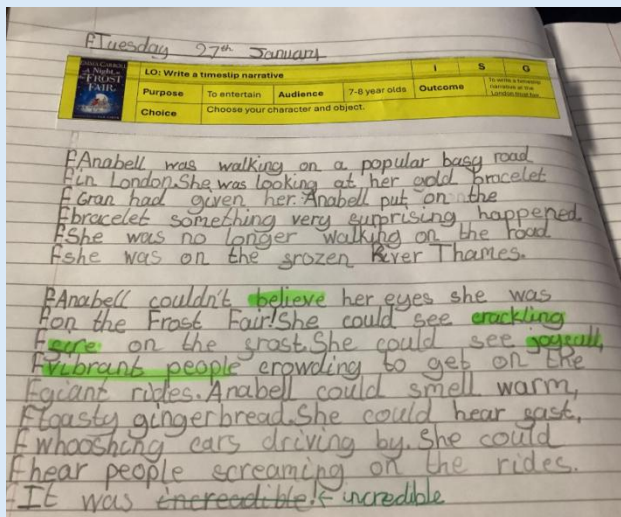 Tuesday 27th January
EMMA CARROLL
A Night at the
FROST
FAIR
LO: Write a timeslip narrative I S G
Purpose To entertain Audience 7-8 year olds Outcome To write a timeslip narrative at the London frost fair
Choice Choose your character and object.
Anabell was walking on a popular basy road
in London. She was looking at her gold bracelet
Gran had given her. Anabell put on the
bracelet something very surprising happened.
She was no longer walking on the road
she was on the srozen River Thames.
Anabell couldn't believe her eyes she was
on the Frost Fair! She could see crackling
sire on the srost. She could see joysall,
vibrant people crowding to get on the
giant rides. Anabell could smell warm,
toasty gingerbread. She could hear sast,
whooshing cars driving by. She could
hear people screaming on the rides.
It was increadible! incredible